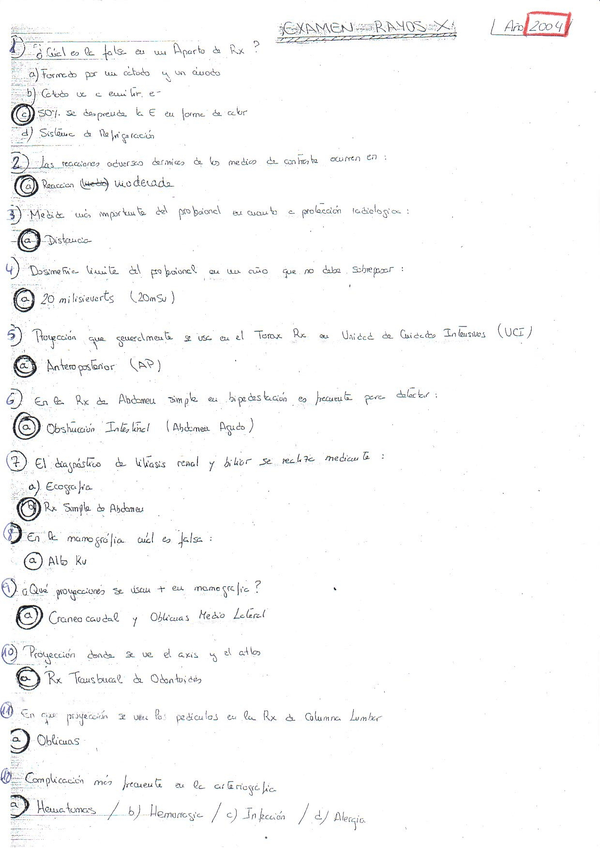 EXAMEN RAYOS X
Año 2004
1) ¿Cuál es la falsa en un Aparato de Rx ?
a) Formado por un cátodo y un ánodo
b) Cátodo va a emitir e-
c) 50% se desprende la E en forma de calor
d) Sistema de Refrigeración
2) Las reacciones adversas dermicas de los medios de contraste ocurren en :
a) Reaccion moderada
3) Medida más importante del profesional en cuanto a protección radiologica :
a) Distancia
4) Dosimetria limite del profesional en un año que no debe sobrepasar :
a) 20 milisieverts (20mSv)
5) Proyección que generalmente se usa en el Torax Rx en Unidad de Cuidados Intensivos (UCI)
a) Anteroposterior (AP)
6) En la Rx de Abdomen simple en bipedestación es frecuente para detectar :
a) Obstrucción Intestinal (Abdomen Agudo)
7) El diagnóstico de litiasis renal y biliar se realiza mediante :
a) Ecografia
b) Rx Simple de Abdomen
8) En la mamográfia cuál es falsa :
a) Alto Kv
9) ¿Qué proyecciones se usan + en mamografia ?
a) Craneocaudal y Oblicuas Medio Lateral
10) Proyección donde se ve el axis y el atlas
a) Rx Transbucal de Odontoides
11) En que proyección se ven los pediculos en la Rx de Columna Lumbar
a) Oblicuas
Complicación más frecuente en la arteriografia
a) Hematomas / b) Hemorragia / c) Infección / d) Alergia